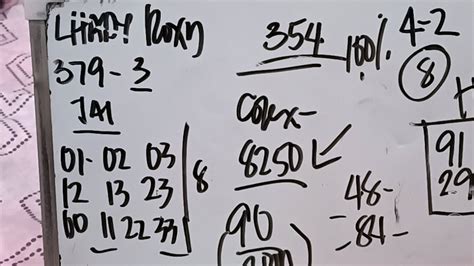 379-3
JAI
01-02 03
12 13 23
00 11 22 33
8
354
100%
4-2
8
8250
90
48-
=84-
91
29